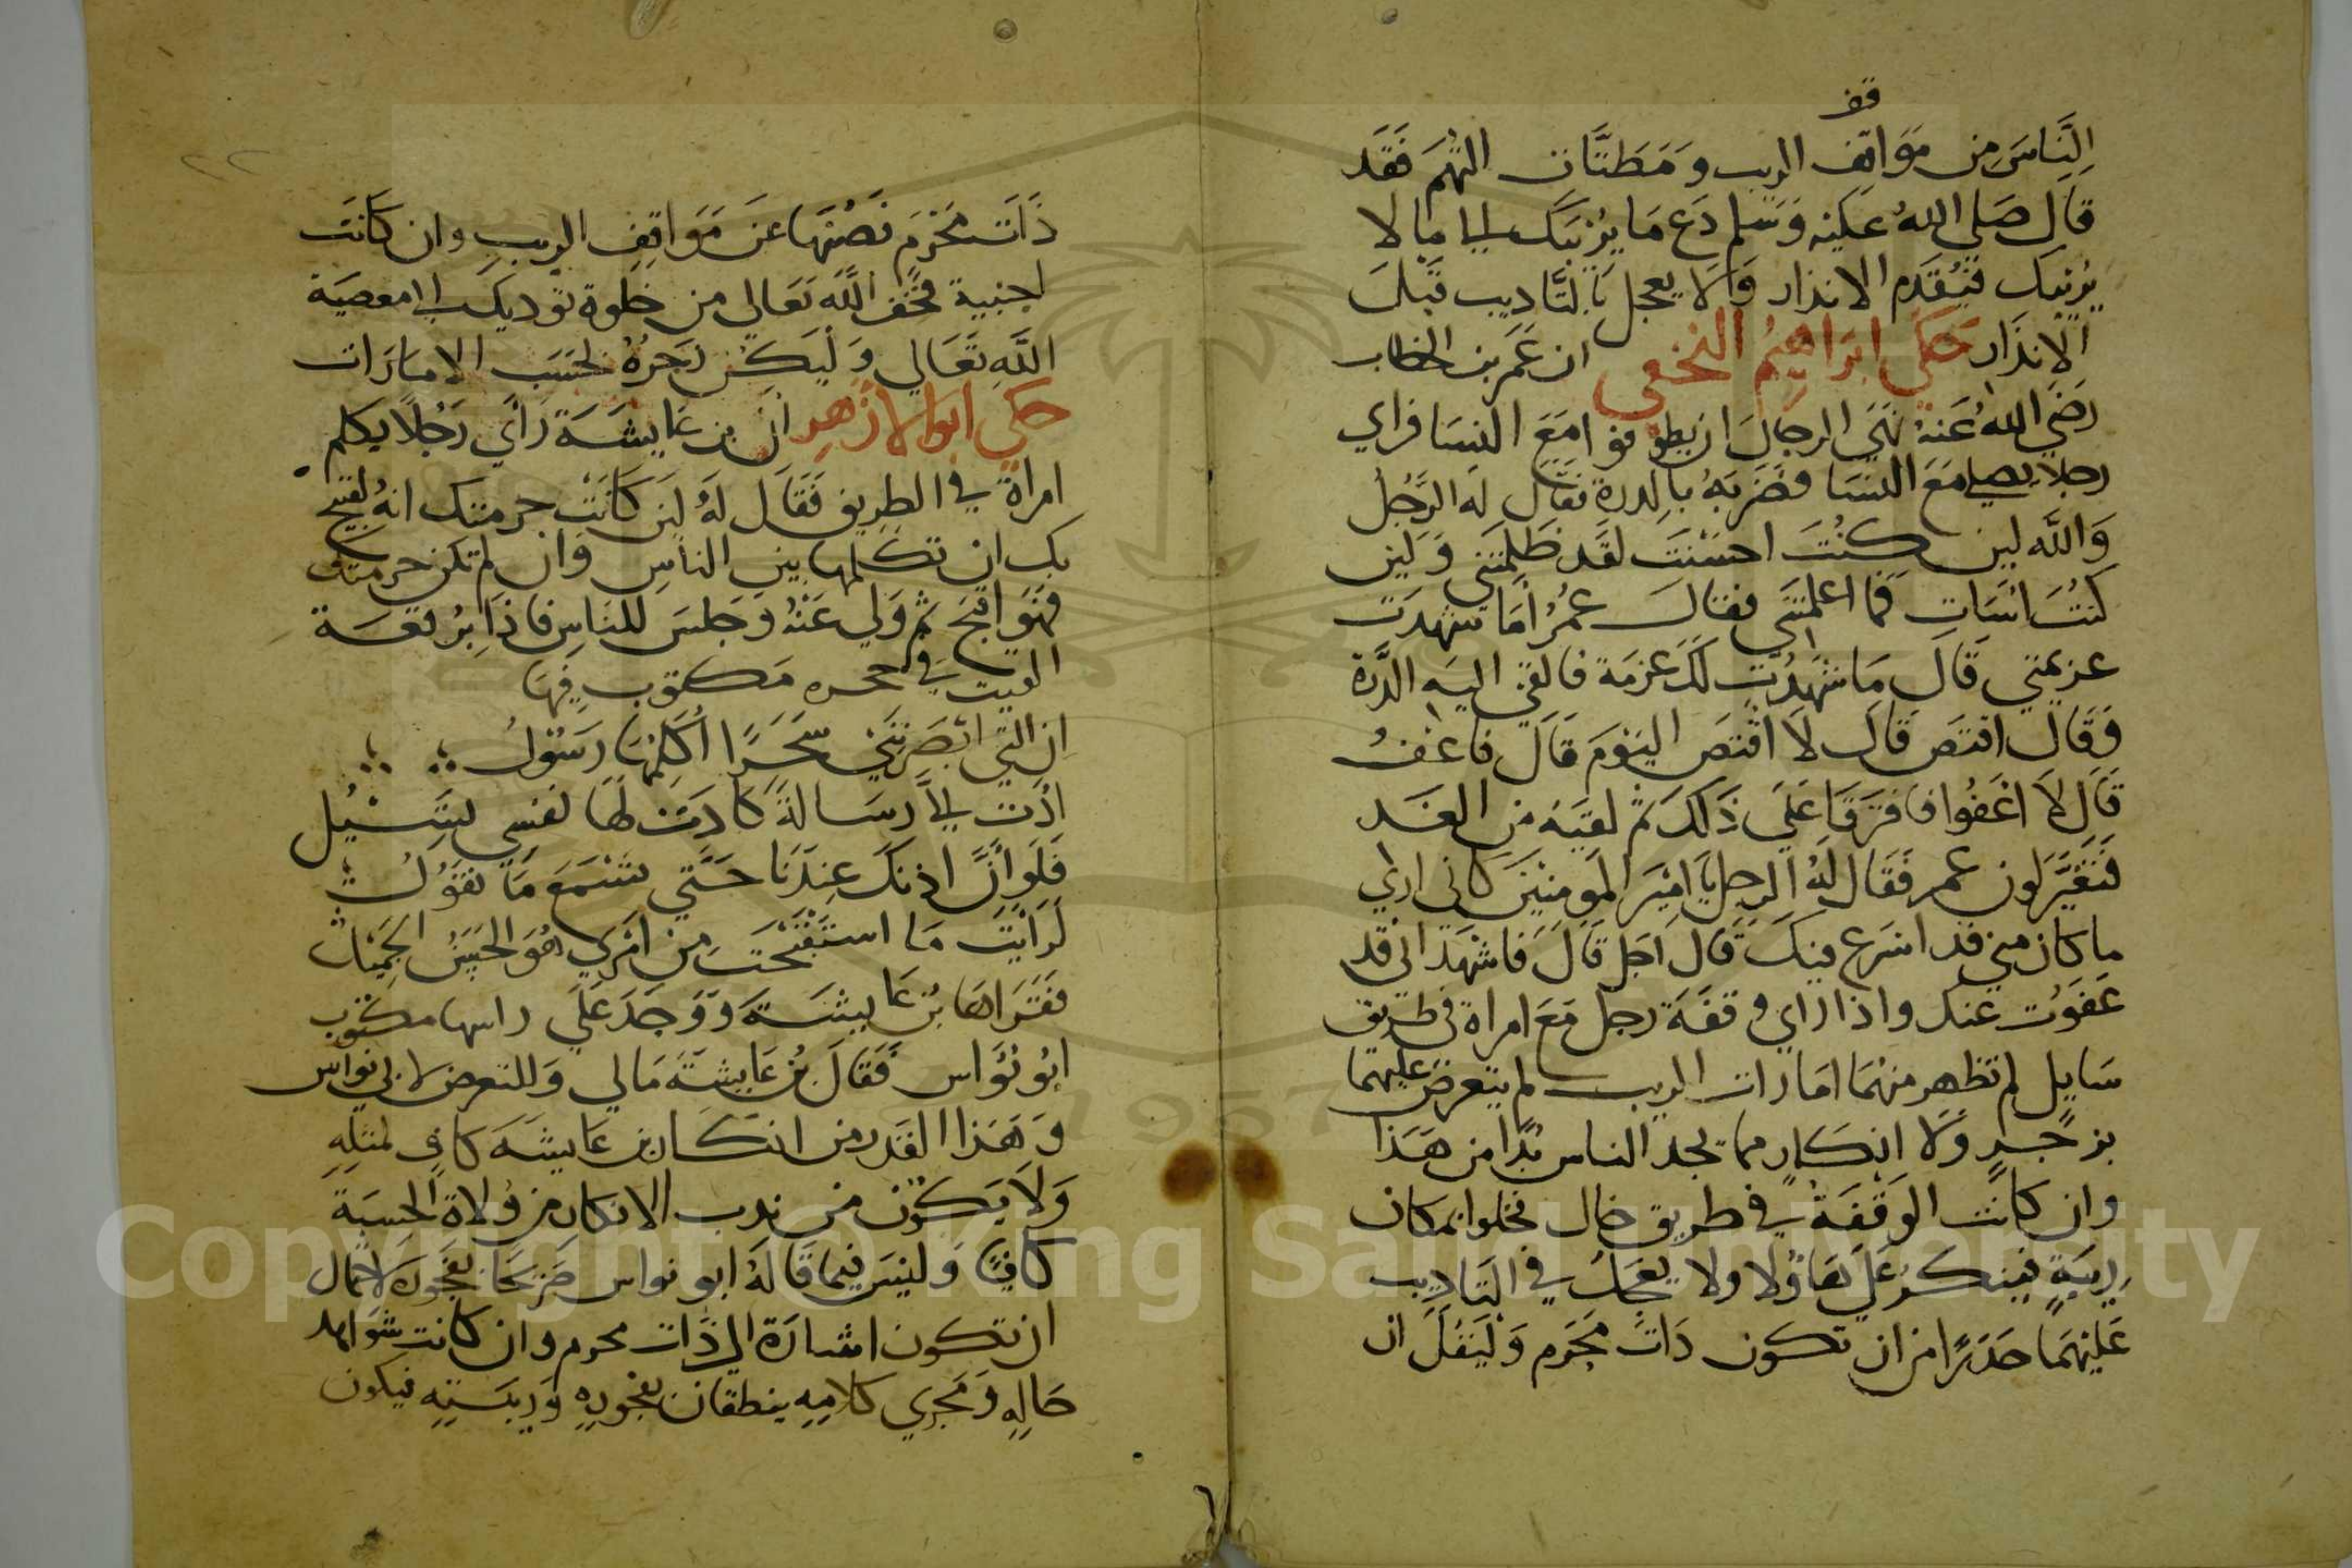 قف
الناس من مواقف الريب ومظنات التهم فقد
قال صلي الله عليه وسلم دع ما يريبك الي ما لا
يريبك فيقدم الانذار ولا يعجل بالتاديب قبل
الانذار حكي ابراهيم النخعي ان عمر بن الخطاب
رضي الله عنه نهي الرجال ان يطوفوا مع النسا فراي
رجلا يصلي مع النسا فضربه بالدرة فقال له الرجل
والله لين كنت احسنت لقد ظلمتني ولين
كنت اسات فما اعلمتني فقال عمر اما شهدت
عزيمتي قال ما شهدت لك عزمة فالقي اليه الدرة
وقال اقتص قال لا اقتص اليوم قال فاعف
قال لا اعفوا فافترقا علي ذلك ثم لقيه من الغد
فتغير لون عمر فقال له الرجل يا امير المومنين كاني اري
ما كان مني قد اسرع فيك قال اجل قال فاشهد اني قد
عفوت عنك واذا راي وقفة رجل مع امراة في طريق
سايل لم تظهر منهما امارات الريب لم يتعرض عليهما
بزجر ولا انكار مما يجد الناس بدا من هذا
وان كانت الوقفة في طريق خال فخلوا بمكان
ريبة فينكر علي هاولا ولا يعجل في التاديب
عليهما حذرا من ان تكون ذات محرم وليقل ان
٢٢
ذات محرم فصنها عن مواقف الريب وان كانت
اجنبية فخف الله تعالي من خلوة توديك الي معصية
الله تعالي وليكن زجره بحسب الامارات
حكي ابوالازهر ان بن عايشة راي رجلا يكلم
امراة في الطريق فقال له لين كانت حرمتك انه لقبيح
بك ان تكلمها بين الناس وان لم تكن حرمتك
فهو اقبح ثم ولي عنه وجلس للناس فاذا برقعة
القيت في حجره مكتوب فيها
ان التي ابصرتني سحرا اكلمها رسول
ادت الي رسالة كادت لها نفسي تسيل
فلو ان اذنك عندنا حتي تسمع ما نقول
لرايت ما استقبحت من امري هو الحسن الجميل
فقراها بن عايشة ووجد علي راسها مكتوب
ابو نواس فقال بن عايشة مالي وللتعرض لابي نواس
وهذا القدر من انكار بن عايشة كاف لمثله
ولا يكون من ندب الانكار من ولاة الحسبة
كافيا وليس فيما قاله ابو نواس صريحا بفجور لاحتمال
ان تكون اشارة الي ذات محرم وان كانت شواهد
حاله ومجري كلامه ينطقان بفجوره وريبته فيكون
Copyright © King Saud University
1957